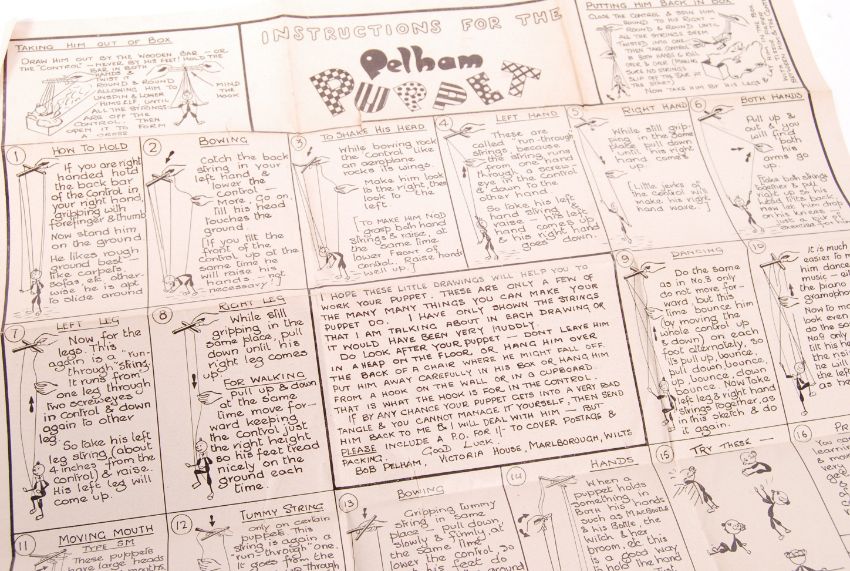 INSTRUCTIONS FOR THE
Pelham
PUPPET
TAKING HIM OUT OF BOX
DRAW HIM OUT BY THE WOODEN BAR – OR
THE 'CONTROL' – NEVER BY HIS FEET! HOLD THE
BAR IN BOTH
HANDS &
TWIST IT
ROUND & ROUND
– ALLOWING HIM TO
UNSPIN & LOWER
HIMSELF UNTIL
ALL THE STRINGS
ARE OFF THE
CONTROL. THEN
OPEN IT TO FORM
A CROSS
MIND
THE
HOOK
PUTTING HIM BACK IN BOX
CLOSE THE CONTROL & SPIN HIM
ROUND TO HIS RIGHT –
ROUND & ROUND UNTIL
ALL THE STRINGS SEEM
TWISTED INTO ONE –
THEN TAKE CONTROL
IN BOTH HANDS & ROLL
OVER & OVER (MAKING
SURE NO STRINGS
SLIP OFF THE BAR
NOW TAKE HIM BY HIS LEGS &
1
HOW TO HOLD
If you are right
handed hold
the back bar
of the Control in
your right hand,
gripping with
forefinger & thumb
Now stand him
on the ground
He likes rough
ground best –
like carpets,
sofas, etc other
wise he is apt
to slide around
2
BOWING
Catch the back
string in your
left hand &
lower the
Control –
More, Go on
Till his head
touches the
ground.
(If you tilt the
front of the
control up at the
same time he
will raise his
hands – not
necessary)
3
TO SHAKE HIS HEAD
While bowing rock
the Control like
an aeroplane
rocks its wings.
Make him look
to the right, then
look to the
left.
[TO MAKE HIM NOD
grasp both hand
strings & raise, at
the same time
lower front of
Control. Raise hands
well up]
4
LEFT HAND
These are
called "run-through"
strings because
the string runs
from one hand
through a screw-
eye in the Control
& down to the
other hand.
So take his left
hand string &
raise – his left
hand comes up
& his right hand
goes down.
5
RIGHT HAND
While still grip-
ping in the same
place pull down
till his right
hand comes
up.
[Little jerks of
the Control will
make his right
hand wave]
6
BOTH HANDS
Pull up &
out & you
will find
both
his
arms go
up.
7
LEFT LEG
Now for the
legs. This
again is a "run-
through" string.
It runs from
one leg through
two screweyes
in control & down
again to other
leg.
So take his left
leg string (about
4 inches from the
control) & raise.
His left leg will
come up.
8
RIGHT LEG
While still
gripping in the
same place, pull
down until his
right leg comes
up.
FOR WALKING
Pull up & down
at the same
time move for-
ward keeping
the control just
the right height
so his feet tread
nicely on the
ground each
time.
I HOPE THESE LITTLE DRAWINGS WILL HELP YOU TO
WORK YOUR PUPPET. THESE ARE ONLY A FEW OF
THE MANY MANY THINGS YOU CAN MAKE YOUR
PUPPET DO. I HAVE ONLY SHOWN THE STRINGS
THAT I AM TALKING ABOUT IN EACH DRAWING OR
IT WOULD HAVE BEEN VERY MUDDLY.
DO LOOK AFTER YOUR PUPPET – DONT LEAVE HIM
IN A HEAP ON THE FLOOR, OR HANG HIM OVER
THE BACK OF A CHAIR WHERE HE MIGHT FALL OFF.
PUT HIM AWAY CAREFULLY IN HIS BOX OR HANG HIM
FROM A HOOK ON THE WALL OR IN A CUPBOARD.
THAT IS WHAT THE HOOK IS FOR IN THE CONTROL.
IF BY ANY CHANCE YOUR PUPPET GETS INTO A VERY BAD
TANGLE & YOU CANNOT MANAGE IT YOURSELF, THEN SEND
HIM BACK TO ME & I WILL DEAL WITH HIM – BUT
PLEASE INCLUDE A P.O. FOR 1/- TO COVER POSTAGE &
PACKING. GOOD LUCK
BOB PELHAM, VICTORIA HOUSE, MARLBOROUGH, WILTS
9
DANCING
Do the same
as in No.8 only
do not move for-
ward, but this
time bounce him
(by moving the
whole control up
& down) on each
foot alternately, so
its pull up, bounce,
pull down, bounce,
up, bounce, down
bounce. Now Take
left leg & right hand
strings together, as
in this sketch & do
it again.
10
It is much
easier to m
him dance
music – eit
the piano
gramopho
11
MOVING MOUTH
TYPE SM
These puppets
have large heads
12
TUMMY STRING
only on certain
puppets. This
string is again a
"run-through" one.
It goes from the
13
BOWING
Gripping Tummy
string in same
place, pull down,
slowly & firmly at
the same time
lower the control, so
his feet do
14
HANDS
When a
puppet holds
something in
both his hands
such as MacBoozle
& his Bottle, the
Witch & her
broom, etc this
is a good way
to hold the hand
15
TRY THESE –
16